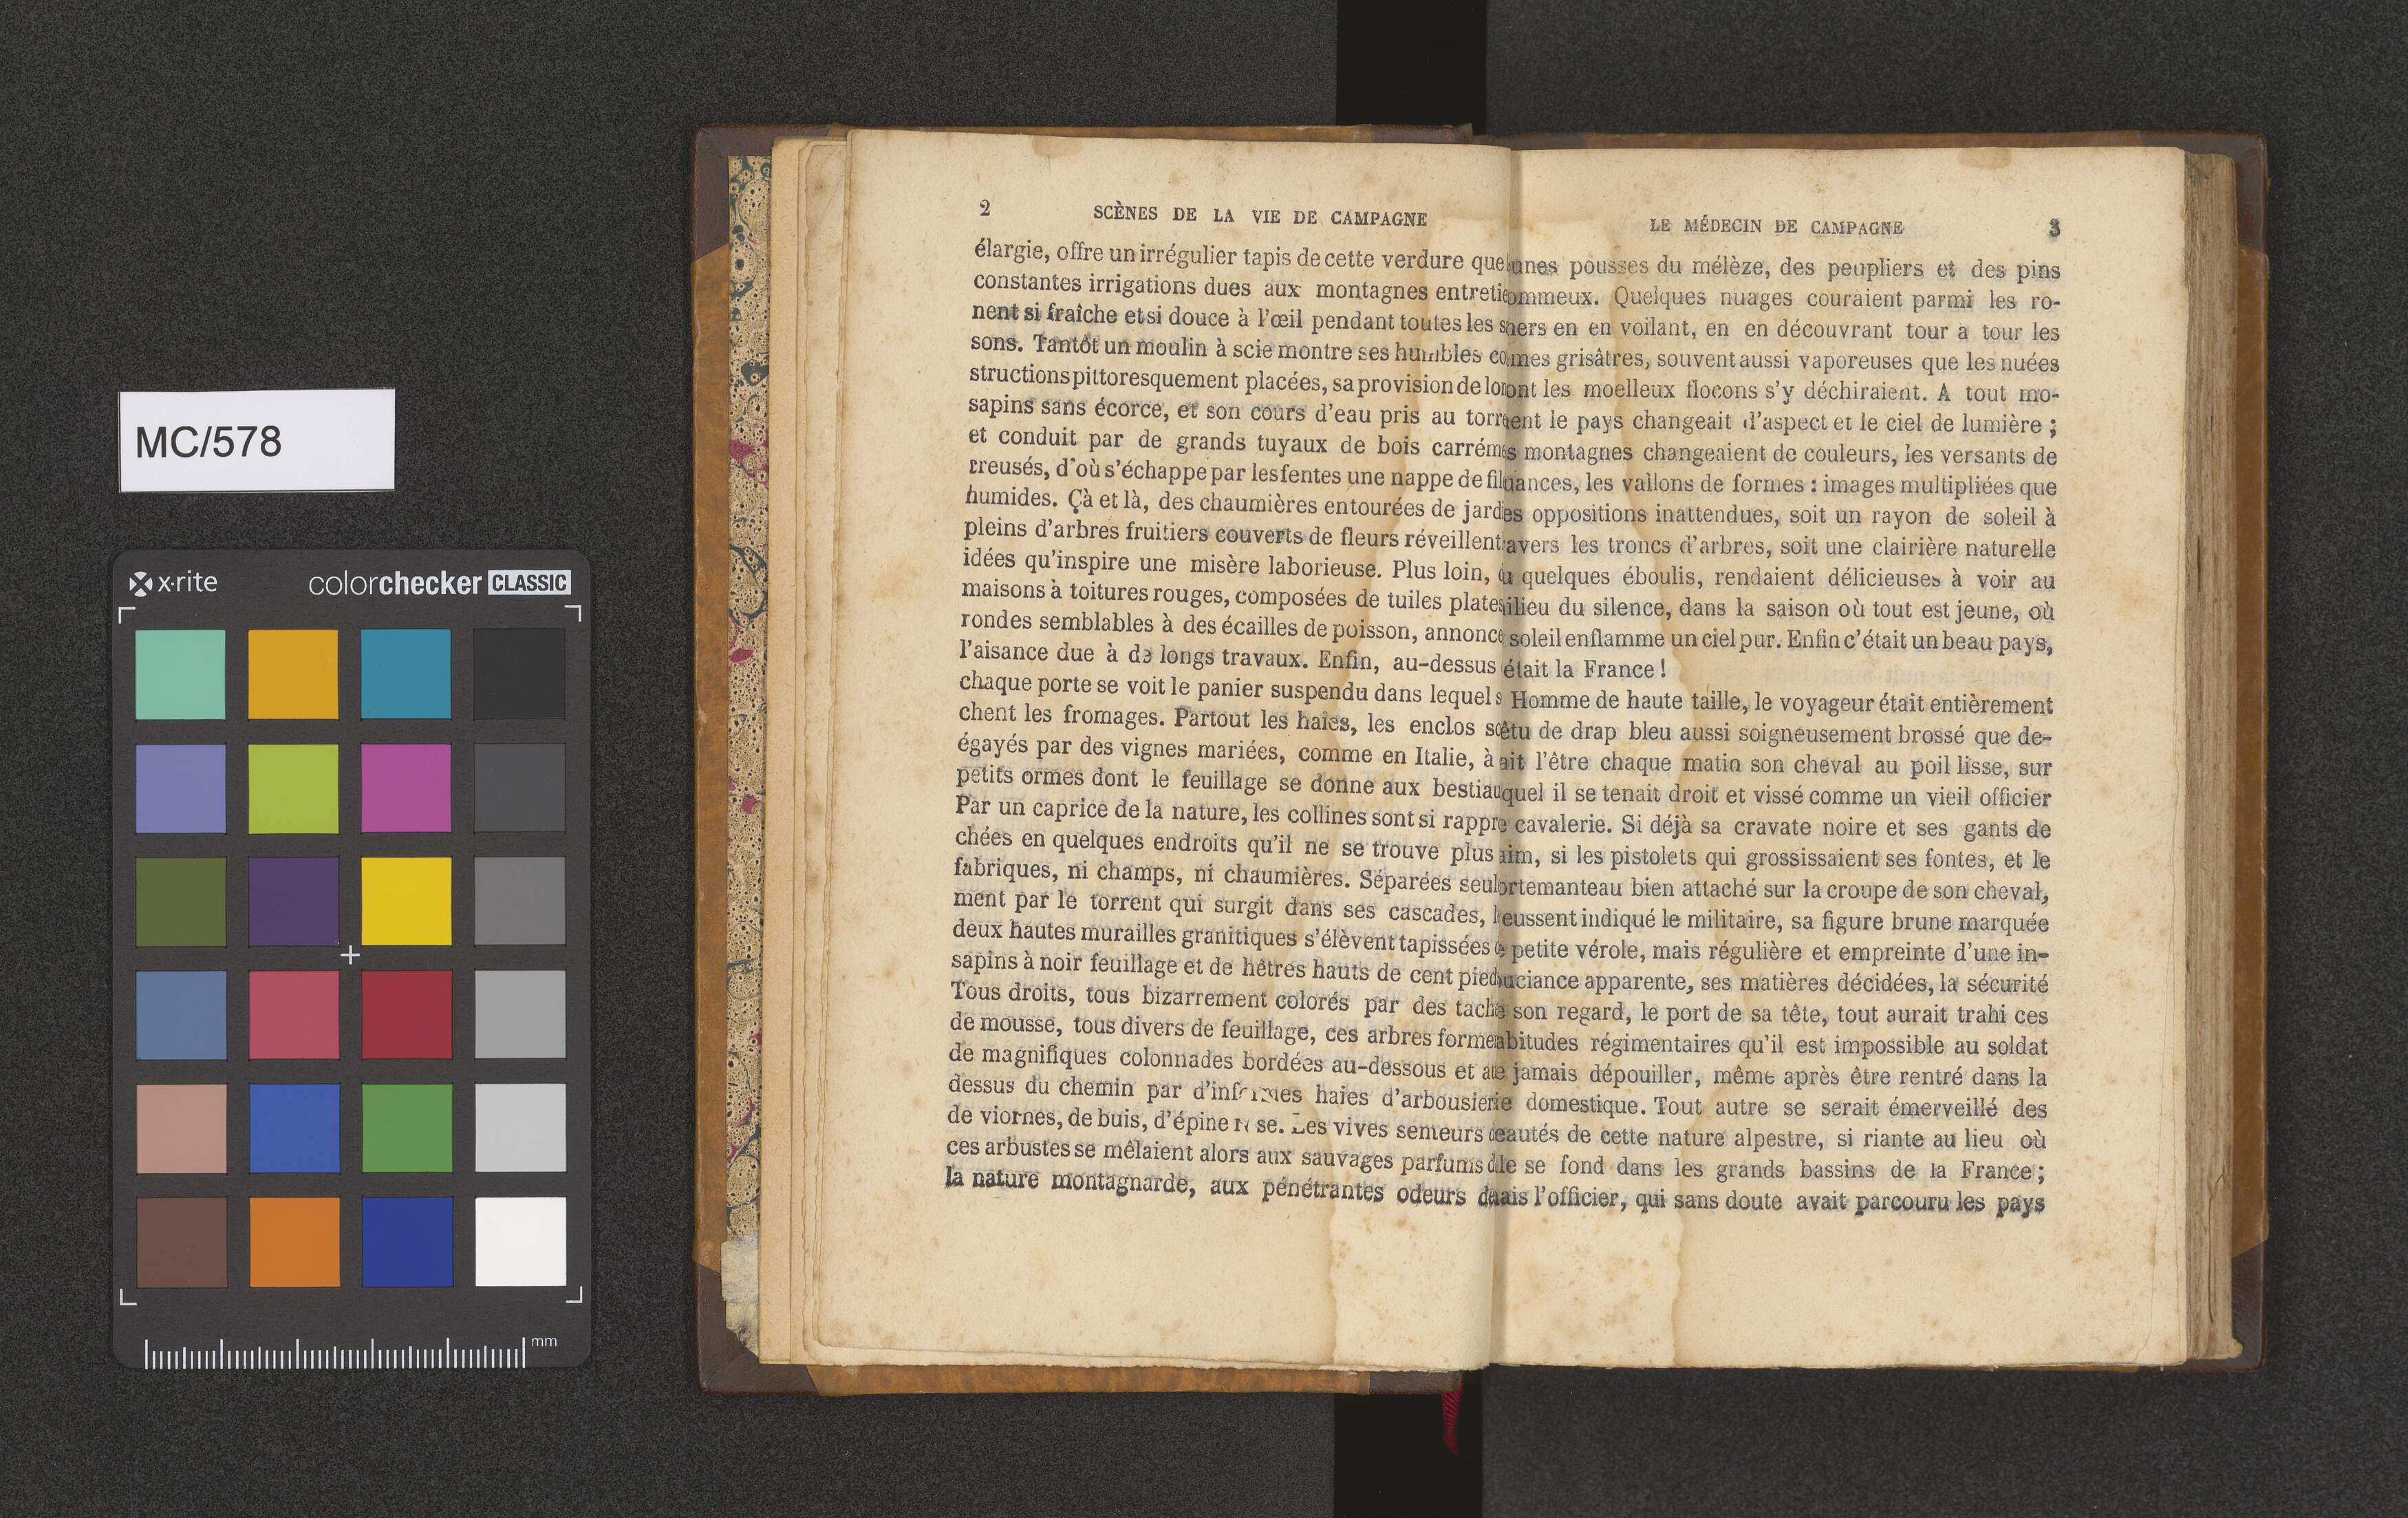 MC/578
x·rite
colorchecker CLASSIC
mm
2
SCÈNES DE LA VIE DE CAMPAGNE
élargie, offre un irrégulier tapis de cette verdure que
constantes irrigations dues aux montagnes entreti
nent si fraîche et si douce à l'œil pendant toutes les s
sons. Tantôt un moulin à scie montre ses humbles co
structions pittoresquement placées, sa provision de lo
sapins sans écorce, et son cours d'eau pris au torr
et conduit par de grands tuyaux de bois carrém
creusés, d'où s'échappe par les fentes une nappe de fil
humides. Çà et là, des chaumières entourées de jard
pleins d'arbres fruitiers couverts de fleurs réveillent
idées qu'inspire une misère laborieuse. Plus loin,
maisons à toitures rouges, composées de tuiles plates
rondes semblables à des écailles de poisson, annonce
l'aisance due à de longs travaux. Enfin, au-dessus
chaque porte se voit le panier suspendu dans lequel s
chent les fromages. Partout les haies, les enclos so
égayés par des vignes mariées, comme en Italie, à
petits ormes dont le feuillage se donne aux bestiau
Par un caprice de la nature, les collines sont si rappr
chées en quelques endroits qu'il ne se trouve plus
fabriques, ni champs, ni chaumières. Séparées seul
ment par le torrent qui surgit dans ses cascades, l
deux hautes murailles granitiques s'élèvent tapissées
sapins à noir feuillage et de hêtres hauts de cent pied
Tous droits, tous bizarrement colorés par des tache
de mousse, tous divers de feuillage, ces arbres forme
de magnifiques colonnades bordées au-dessous et au
dessus du chemin par d'informes haies d'arbousier
de viornes, de buis, d'épine rose. Les vives senteurs
ces arbustes se mêlaient alors aux sauvages parfums d
la nature montagnarde, aux pénétrantes odeurs d
LE MÉDECIN DE CAMPAGNE
3
unes pousses du mélèze, des peupliers et des pins
ommeux. Quelques nuages couraient parmi les ro-
hers en en voilant, en en découvrant tour a tour les
mes grisâtres, souvent aussi vaporeuses que les nuées
ont les moelleux flocons s'y déchiraient. A tout mo-
ent le pays changeait d'aspect et le ciel de lumière ;
s montagnes changeaient de couleurs, les versants de
uances, les vallons de formes : images multipliées que
es oppositions inattendues, soit un rayon de soleil à
avers les troncs d'arbres, soit une clairière naturelle
u quelques éboulis, rendaient délicieuses à voir au
ilieu du silence, dans la saison où tout est jeune, où
soleil enflamme un ciel pur. Enfin c'était un beau pays,
était la France !
Homme de haute taille, le voyageur était entièrement
êtu de drap bleu aussi soigneusement brossé que de-
ait l'être chaque matin son cheval au poil lisse, sur
quel il se tenait droit et vissé comme un vieil officier
e cavalerie. Si déjà sa cravate noire et ses gants de
aim, si les pistolets qui grossissaient ses fontes, et le
ortemanteau bien attaché sur la croupe de son cheval,
eussent indiqué le militaire, sa figure brune marquée
e petite vérole, mais régulière et empreinte d'une in-
uciance apparente, ses matières décidées, la sécurité
e son regard, le port de sa tête, tout aurait trahi ces
abitudes régimentaires qu'il est impossible au soldat
e jamais dépouiller, même après être rentré dans la
ie domestique. Tout autre se serait émerveillé des
eautés de cette nature alpestre, si riante au lieu où
lle se fond dans les grands bassins de la France ;
ais l'officier, qui sans doute avait parcouru les pays